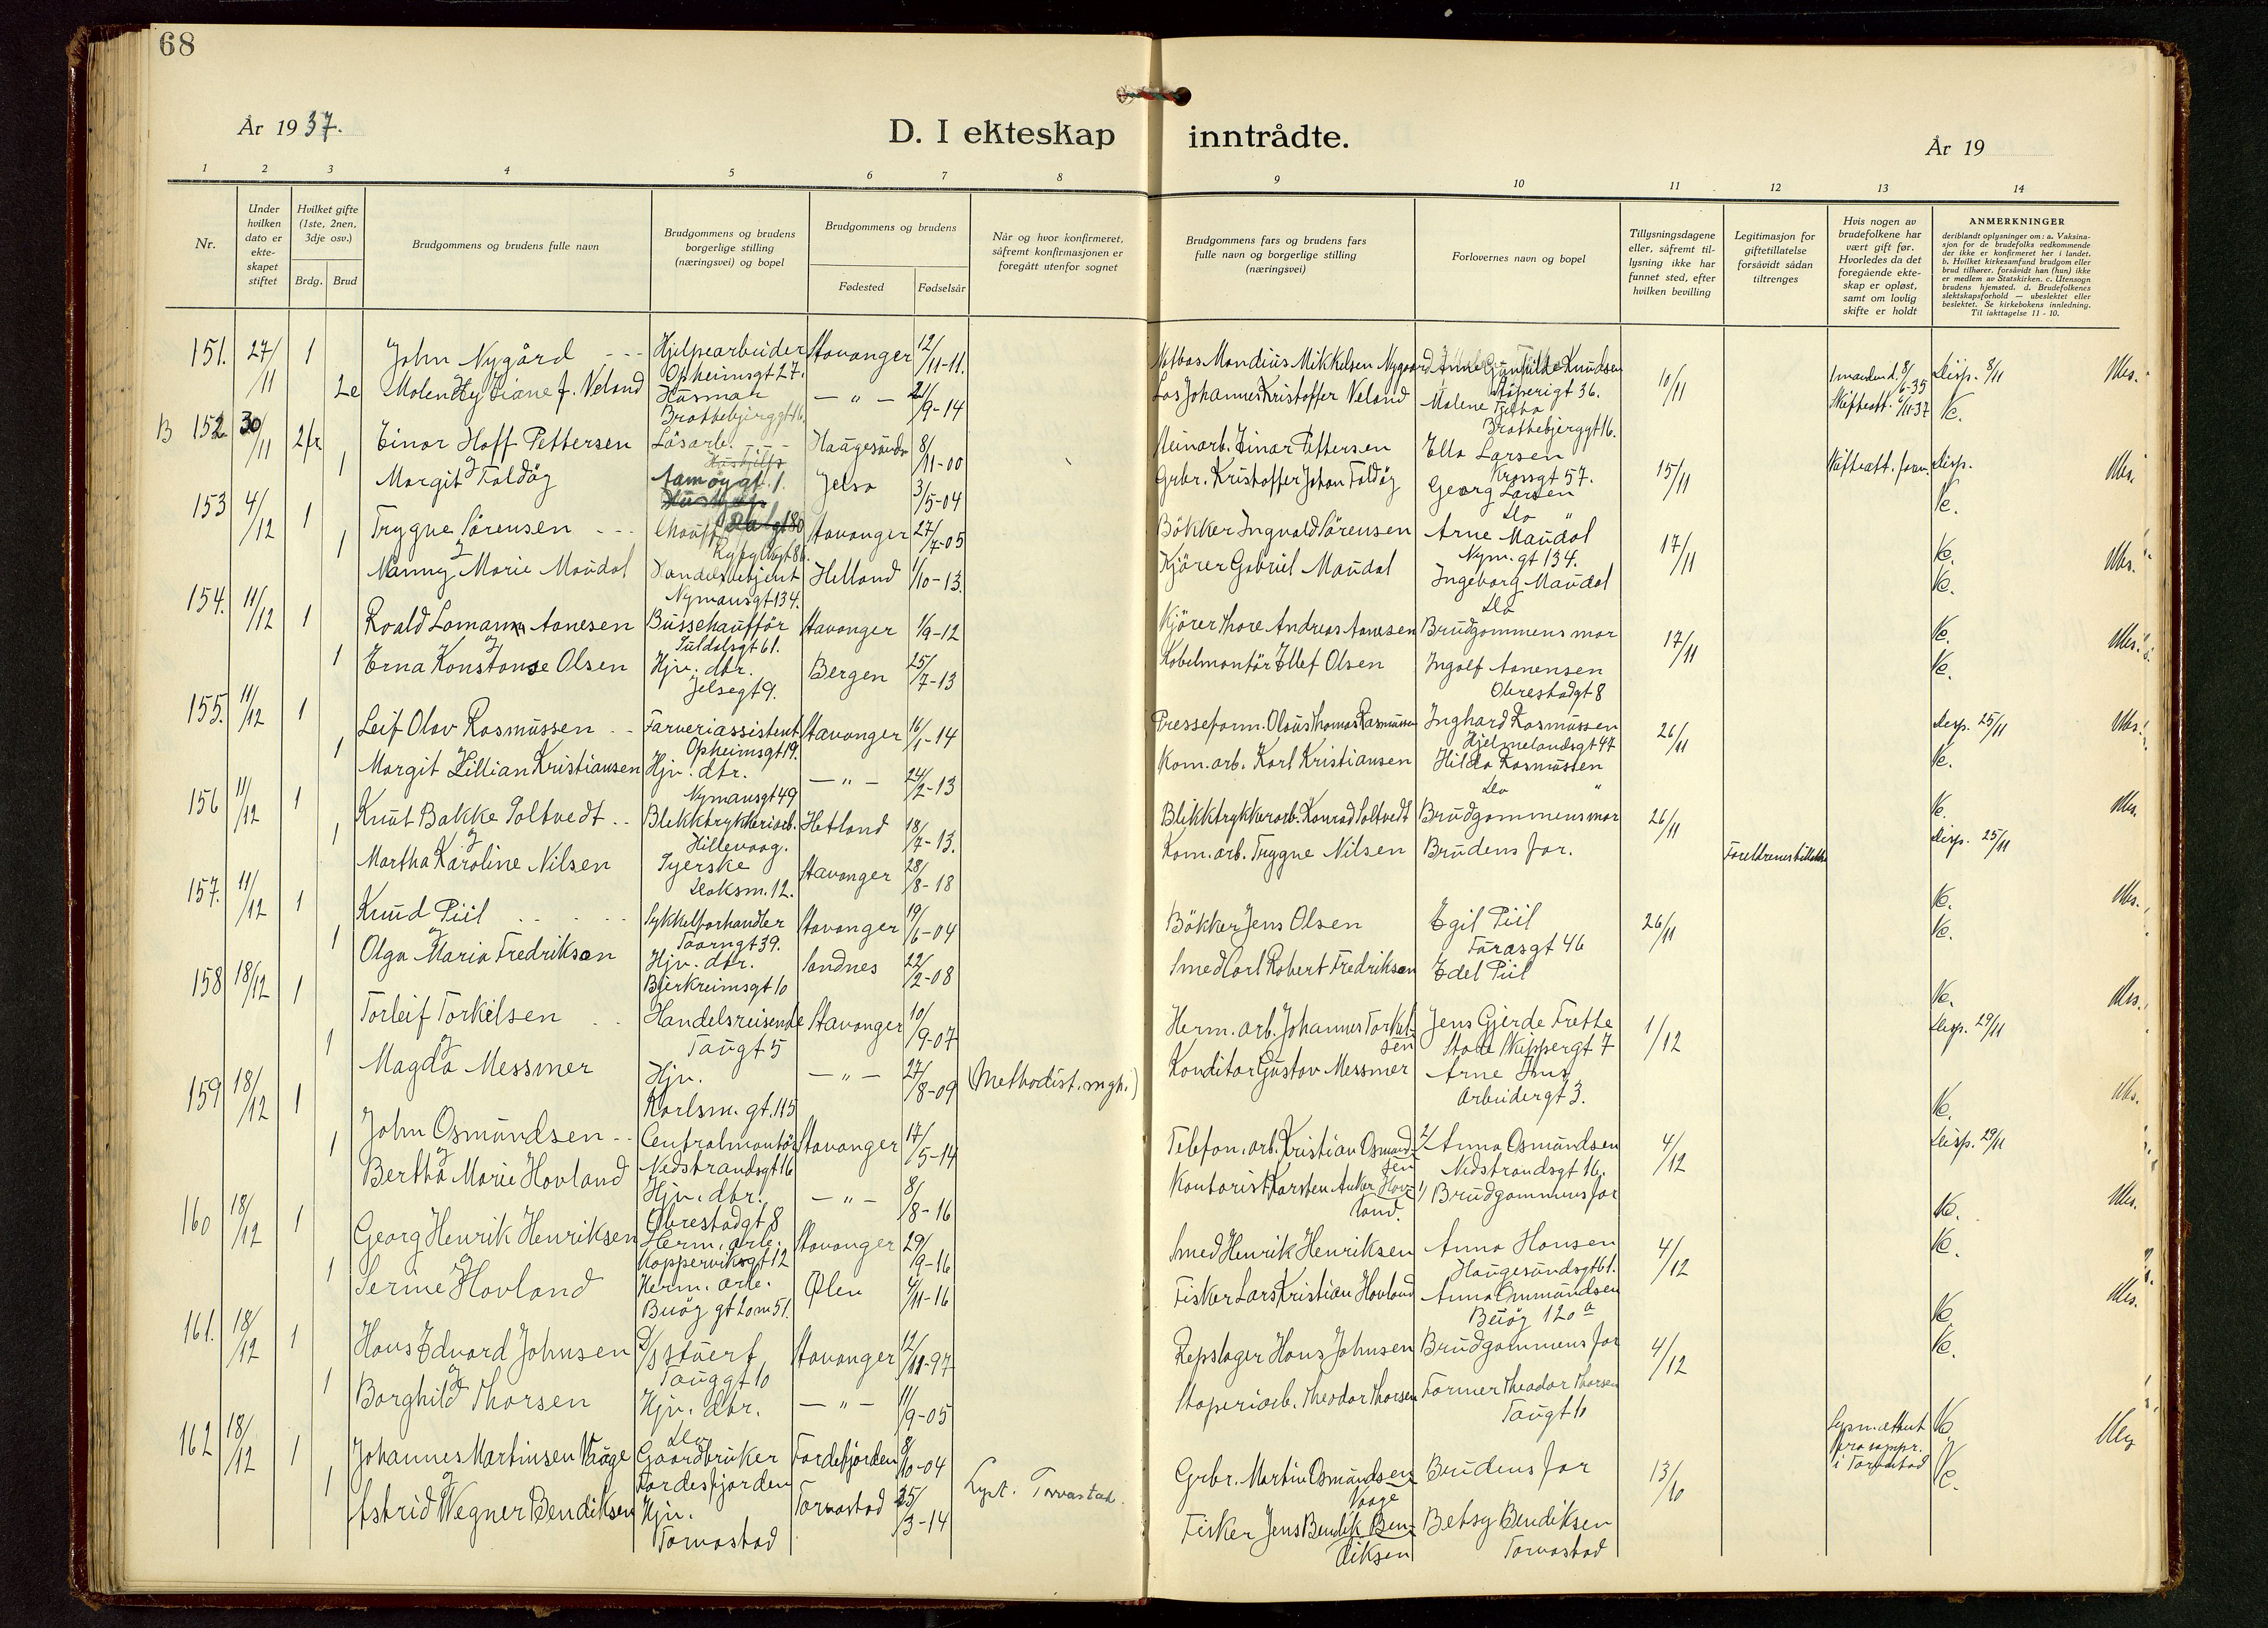 68
År 1937.
D. I ekteskap inntrådte.
År 19
1 2 3 4 5 6 7 8 9 10 11 12 13 14
Nr.
Under hvilken dato er ekteskapet stiftet
Hvilket gifte (1ste, 2nen, 3dje osv.)
Brdg. Brud
Brudgommens og brudens fulle navn
Brudgommens og brudens borgerlige stilling (næringsvei) og bopel
Brudgommens og brudens
Fødested Fødselsår
Når og hvor konfirmeret, såfremt konfirmasjonen er foregått utenfor sognet
Brudgommens fars og brudens fars fulle navn og borgerlige stilling (næringsvei)
Forlovernes navn og bopel
Tillysningsdagene eller, såfremt tillysning ikke har funnet sted, efter hvilken bevilling
Legitimasjon for giftetillatelse forsåvidt sådan tiltrenges
Hvis nogen av brudefolkene har vært gift før. Hvorledes da det foregående ekteskap er opløst, samt om lovlig skifte er holdt
ANMERKNINGER
deriblandt oplysninger om: a. Vaksinasjon for de brudefolks vedkommende der ikke er konfirmeret her i landet. b. Hvilket kirkesamfund brudgom eller brud tilhører, forsåvidt han (hun) ikke er medlem av Statskirken. c. Utensogn brudens hjemsted. d. Brudefolkenes slektskapsforhold — ubeslektet eller beslektet. Se kirkebokens innledning. Til iakttagelse 11 - 10.
151. 27/11 1 John Nygård Hjelpearbeider Stavanger 12/11-11. Mandius Mikkelsen Nygaard Knudsen 10/11 Disp. 8/11
Opheimsgt 27. Støperigt 36.
2e Veland Husmor — " — 21/9-14 Los Johannes Kristoffer Veland Malene 
Brattebjerggt 16. Brattebjerggt 16.
B 152. 30/11 2fr. Einar Hoff Pettersen Løsarb. Haugesund 8/11-00 Einar Pettersen Ella Larsen 15/11 Disp.
Kronsgt 57.
1 Margit Foldøy Jelsa 3/5-04 Grbr. Kristoffer Johan Foldøy Georg Larsen
Do "
153 4/12 1 Trygve Sørensen Chauff. Stavanger 27/7-05 Bøkker Ingvald Sørensen Arne Maudal 17/11
Nym. gt 134.
1 Nanny Marie Maudal Handelsbetjent Helland 1/10-13. Kjører Gabriel Maudal Ingeborg Maudal
Nymansgt 134. Do
154. 11/12 1 Roald Lomann Aanesen Busschauffør Stavanger 1/9-12 Kjører Thore Andreas Aanesen Brudgommens mor 17/11
Suldalsgt 61.
1 Erna Konstanse Olsen Hjv. dtr. Bergen 25/7-13 Kabelmontør Ellef Olsen Ingolf Aanensen
Jelsegt 9. Obrestadgt 8
155. 11/12 1 Leif Olav Rasmussen Farveriassistent Stavanger 16/1-14 Presseform. Olaus Thomas Rasmussen Inghard Rasmussen 26/11 Disp. 25/11
Opheimsgt 19. Hjelmelandsgt 47
1 Margit Lillian Kristiansen Hjv. dtr. — " — 24/2-13 Kom. arb. Karl Kristiansen Hilda Rasmussen
Nymansgt 49 Do "
156 11/12 1 Knut Bakke Soltvedt Blikktrykkeriarb. Hetland 18/7-13. Blikktrykkerarb. Konrad Soltvedt Brudgommens mor 26/11
Hillevaag.
1 Martha Karoline Nilsen Syerske Stavanger 28/8-18 Kom. arb. Trygve Nilsen Brudens far. Foreldrenes tillatelse Disp. 25/11
Doksm. 12.
157. 11/12 1 Knud Piil Sykkelforhandler Stavanger 19/6-04 Bøkker Jens Olsen Egil Piil 26/11
Taarngt 39. Tarasgt 46
1 Olga Maria Fredriksen Hjv. dtr. Sandnes 22/2-08 Smed Carl Robert Fredriksen Edel Piil
Bjerkreimsgt 10
158 18/12 1 Torleif Torkelsen Handelsreisende Stavanger 10/9-07 Herm. arb. Johannes Torkelsen Jens Gjerde Frette 1/12 Disp. 29/11
Taugt 5 Store Skippergt 7
1 Magda Messmer Hjv. — " — 27/8-09 (Methodist. mgh.) Konditor Gustav Messmer Arne
Karlsm. gt. 115 Arbeidergt 3.
159 18/12 1 John Osmundsen Centralmontør Stavanger 17/5-14 Telefon. arb. Kristian Osmundsen 2/ Anna Osmundsen 4/12 Disp. 29/11
Nedstrandsgt 16 Nedstrandsgt 16.
1 Bertha Marie Hovland Hjv. dtr. — " — 8/8-16 Kontorist Karsten Anker Hovland. 1/ Brudgommens far
Obrestadgt 8
160 18/12 1 Georg Henrik Henriksen Herm. arb. Stavanger 29/9-16 Smed Henrik Henriksen Anna Hansen 4/12
Koppervikgt 12 Haugesundsgt 61.
1 Serine Hovland Herm. arb. Ølen 4/11-16 Fisker Lars Kristian Hovland Anna Ommundsen
Buøy gt 2 om 51. Buøy 120 a
161. 18/12 1 Hans Edvard Johnsen D/S stuert Stavanger 12/12-97 Repslager Hans Johnsen Brudgommens far 4/12
Tauggt 10
1 Borghild Thorsen Hjv. dtr. — " — 11/9-05 Støperiarb. Theodor Thorsen Former Theodor Thorsen
Do Taugt 11
162 18/12 1 Johannes Martinsen Vaage Gaardbruker Førdesfjorden 8/10-04 Grbr. Martin Osmundsen Vaage Brudens far 13/10 Lysn. attest fra sognpr. i Torvastad
Førdesfjorden
1 Astrid Wegner Bendiksen Hjv. Torvastad 25/3-14 Lyst. Torvastad. Fisker Jens Bendik Bendiksen Betsy Bendiksen
Torvastad Torvastad